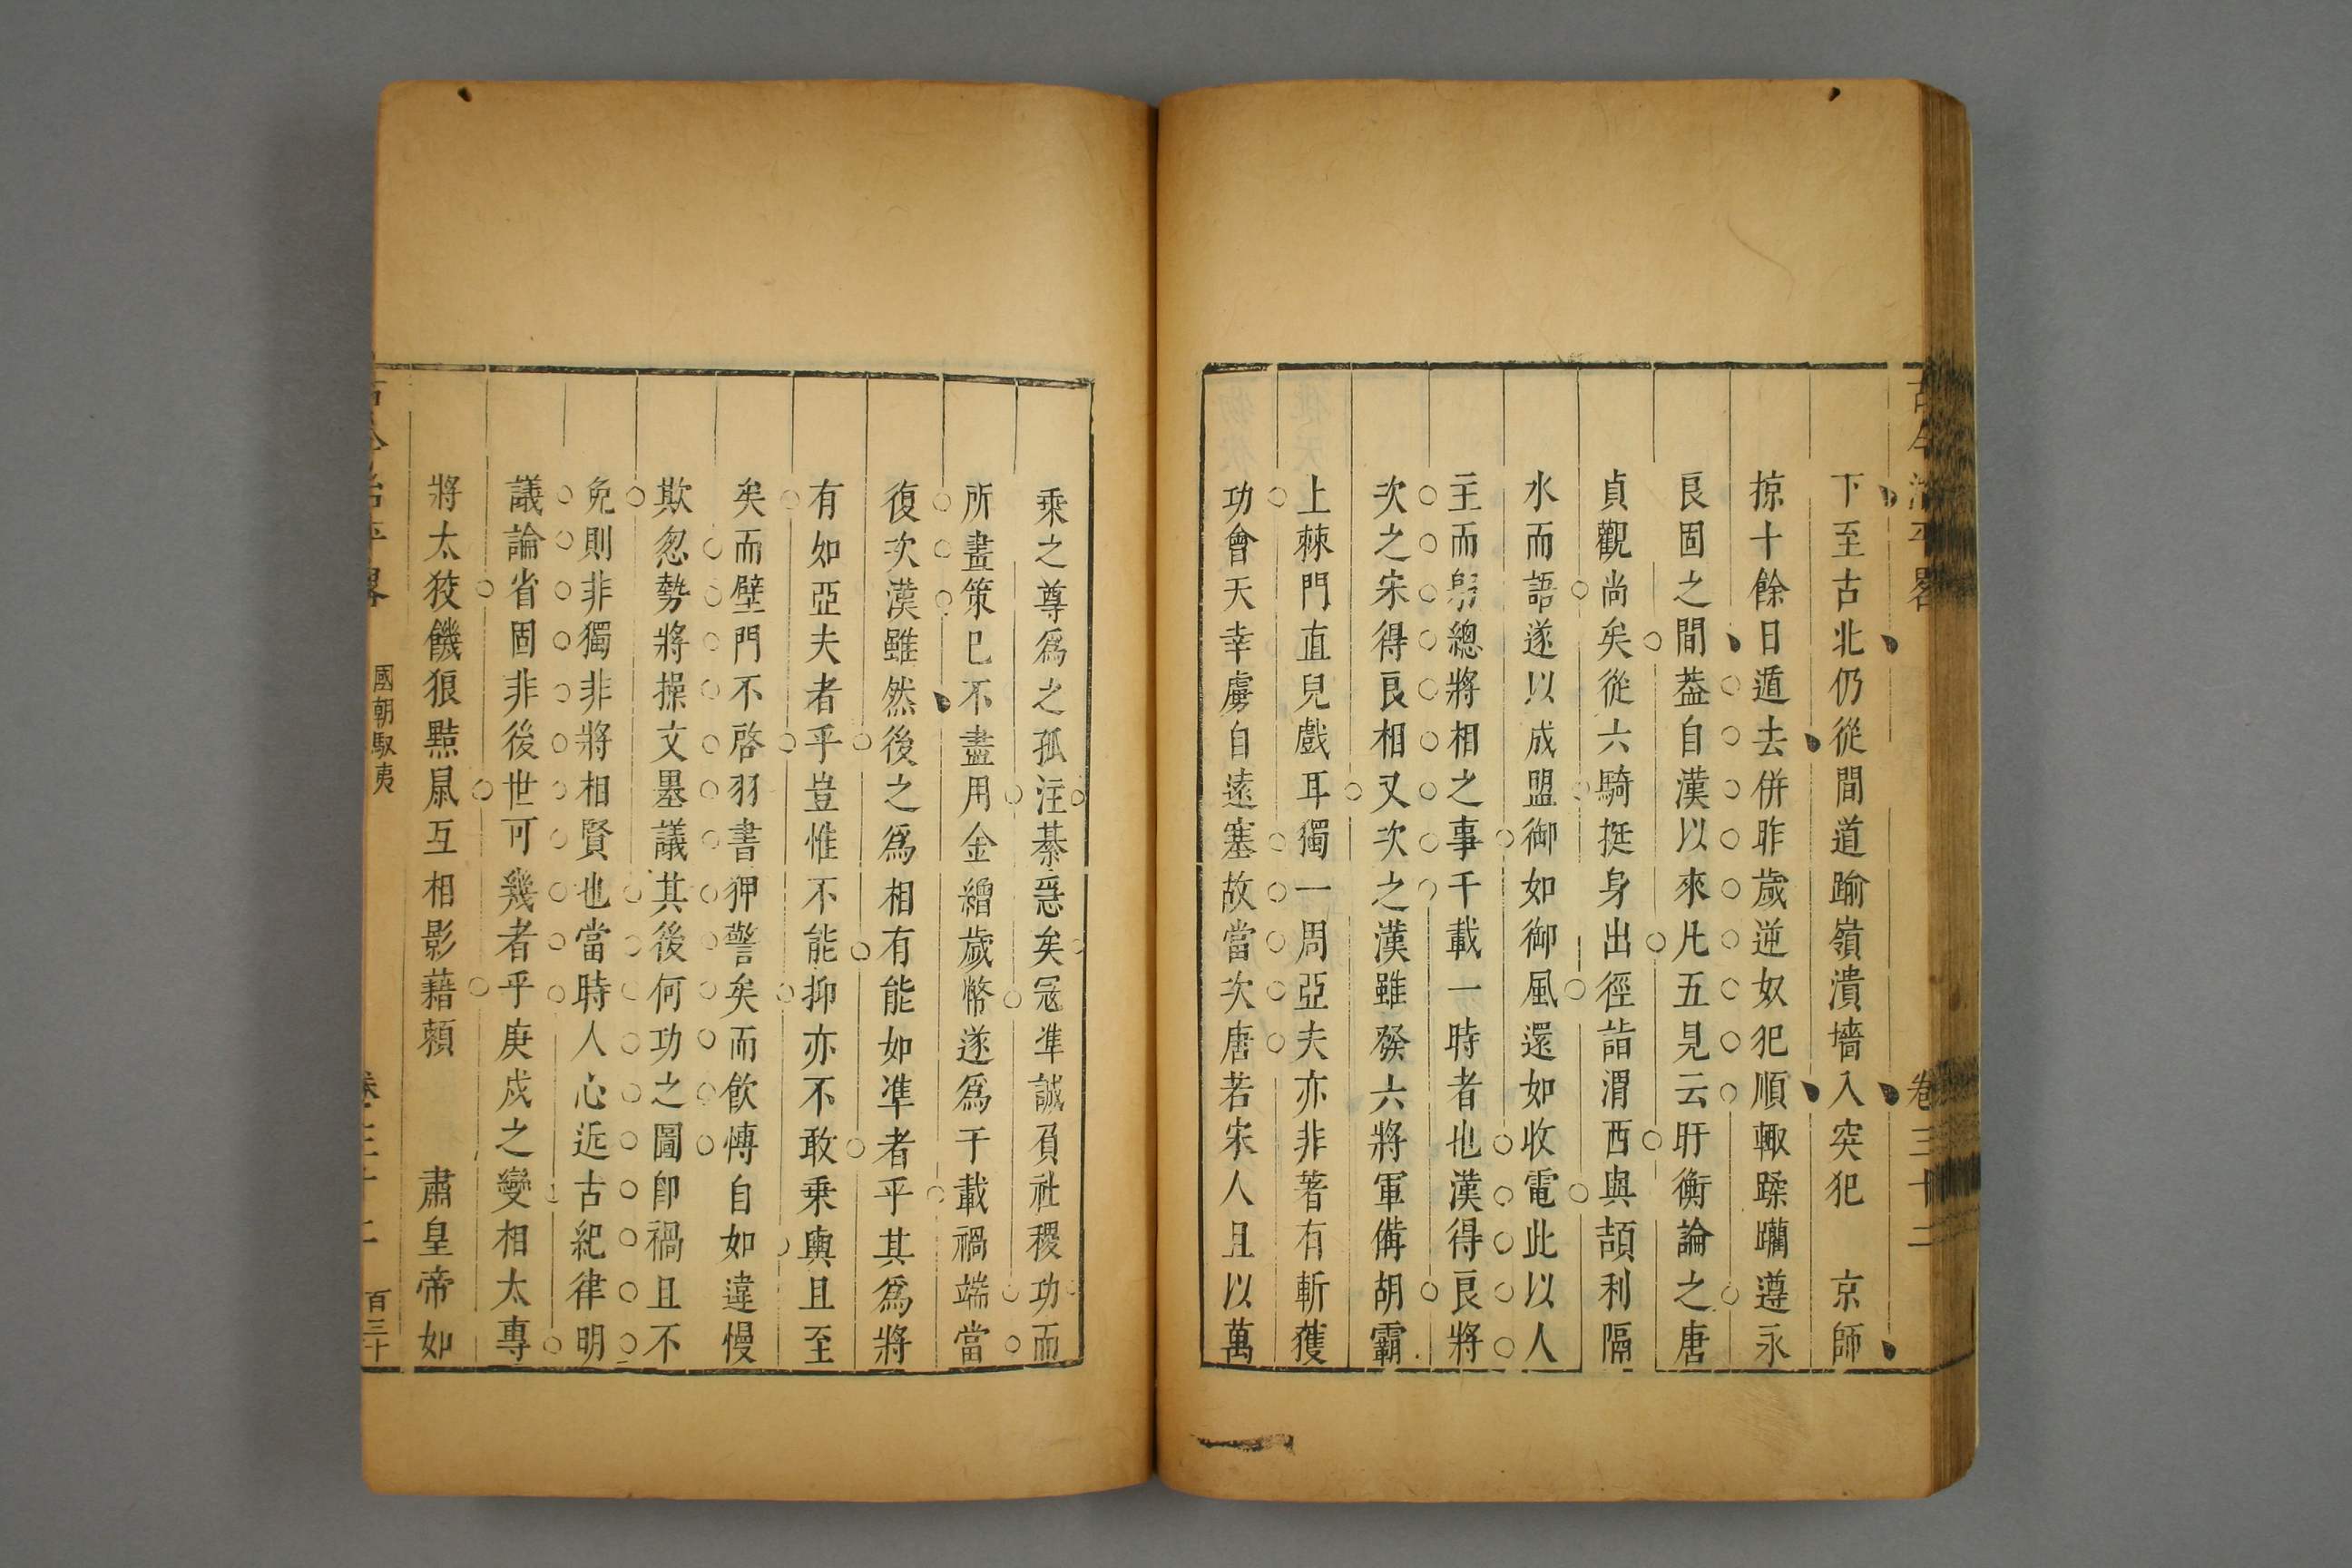 古今治平畧
卷三十二
下至古北仍從間道踰嶺潰墻入突犯　京師
掠十餘日遁去併昨歲逆奴犯順輙蹂躪遵永
艮固之間葢自漢以來凡五見云旰衡論之唐
貞觀尚矣從六騎挺身出徑詣渭西與頡利隔
水而語遂以成盟御如御風還如收電此以人
主而躬總將相之事千載一時者也漢得良將
次之宋得良相又次之漢雖發六將軍備胡霸
上棘門直兒戲耳獨一周亞夫亦非著有斬獲
功會天幸虜自遠塞故當次唐若宋人且以萬
乗之尊爲之孤注綦惡矣冦準誠負社稷功而
所畫策已不盡用金繒歲幣遂爲千載禍端當
復次漢雖然後之爲相有能如準者乎其爲將
有如亞夫者乎豈惟不能抑亦不敢乗輿且至
矣而壁門不啓羽書狎警矣而飲愽自如違慢
欺忽勢將操文墨議其後何功之圖卽禍且不
免則非獨非將相賢也當時人心近古紀律明
議論省固非後世可幾者乎庚戍之變相太專
將太狡饑狼黠鼠互相影藉頼　　肅皇帝如
古今治平畧
國朝馭夷
卷三十二
百三十